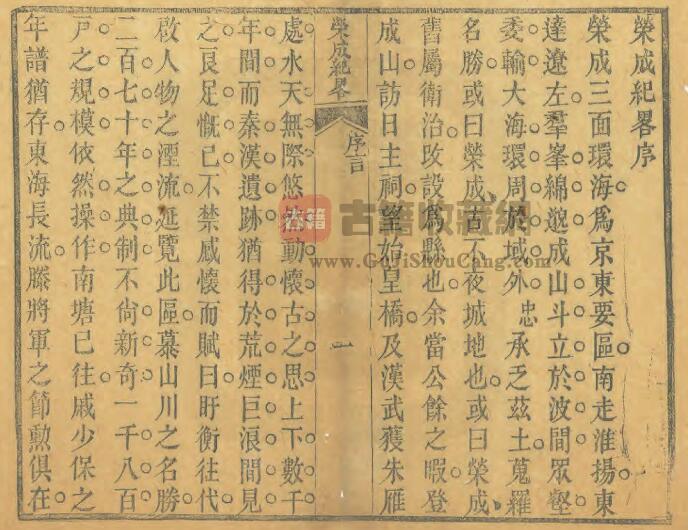 榮成紀畧序
榮成三面環海爲京東要區南走淮揚東
達遼左羣峯綿邈成山斗立於波間眾壑
委輸大海環周於域外忠承乏茲土蒐羅
名勝或曰榮成古不夜城地也或曰榮成
舊屬衛治攺設爲縣也余當公餘之暇登
成山訪日主祠望始皇橋及漢武獲朱雁
榮成紀畧
序言
一
處水天無際悠然動懷古之思上下數千
年間而秦漢遺跡猶得於荒煙巨浪間見
之良足慨已不禁感懷而賦曰盱衡往代
啟人物之湮流延覽此區慕山川之名勝
二百七十年之典制不尙新奇一千八百
戸之規模依然操作南塘已往戚少保之
年譜猶存東海長流滕將軍之節勲俱在
古籍
古籍收藏網
www.GuJiShouCang.com